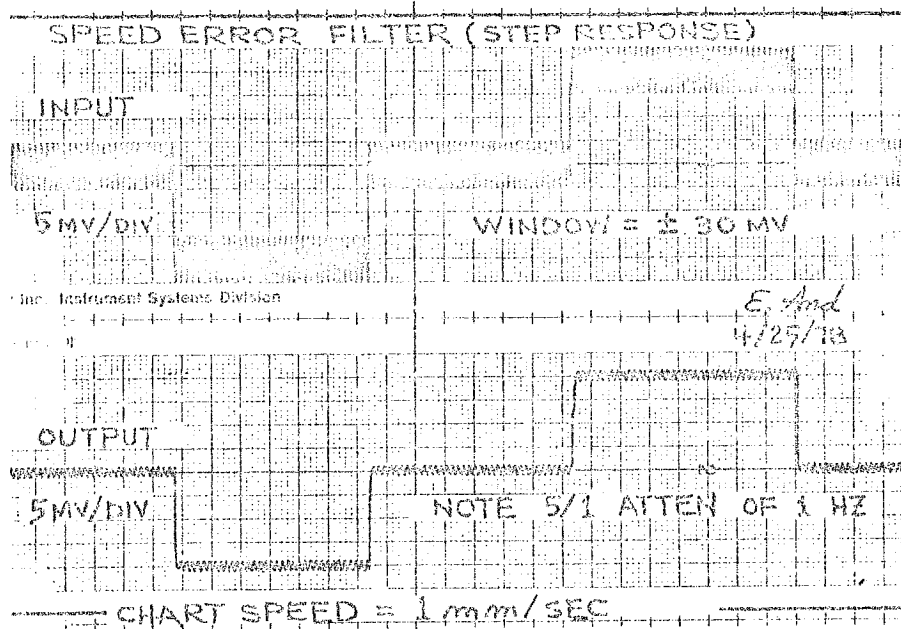 SPEED ERROR FILTER (STEP RESPONSE)
INPUT
5 MV/DIV
WINDOW = ± 30 MV
Inc. Instrument Systems Division
E. And
4/25/78
OUTPUT
5 MV/DIV
NOTE 5/1 ATTEN OF 1 HZ
CHART SPEED = 1 mm/SEC